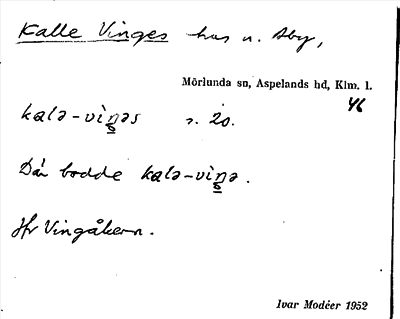 Kalle Vinges hus n. Aby,
Mörlunda sn, Aspelands hd, Klm. l.
46
kalə-vìŋəs s. 20.
Där bodde kalə-vìŋə.
Jfr Vingåkern.
Ivar Modéer 1952